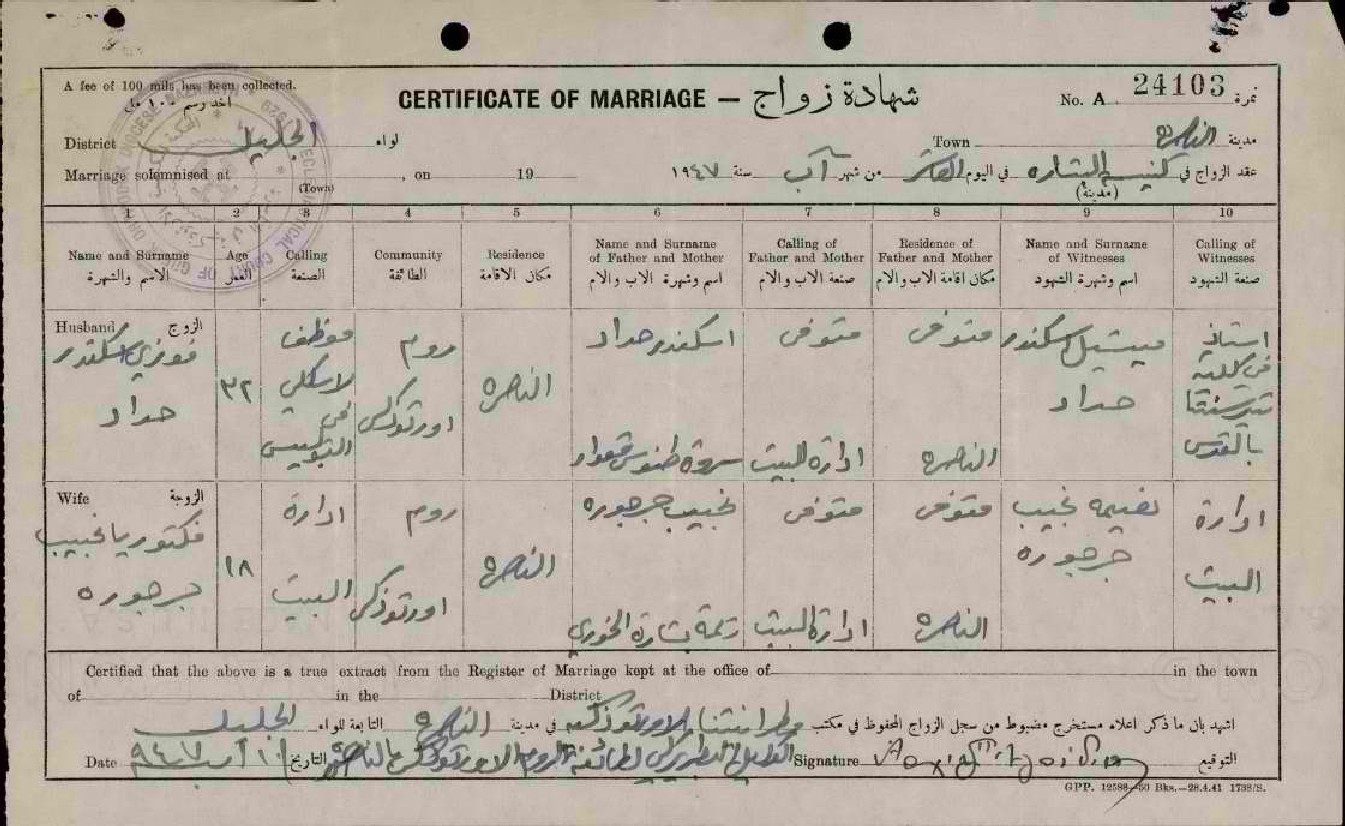 A fee of 100 mils has been collected.
اخذ رسم ١٠٠ مل
CERTIFICATE OF MARRIAGE — شهادة زواج
No. A. 24103 نمرة
District الجليل لواء
Town الناصرة مدينة
Marriage solemnised at , on 19
(Town)
عقد الزواج في كنيسة البشارة في اليوم العاشر من شهر آب سنة ١٩٤٧
(مدينة)
1 2 3 4 5 6 7 8 9 10
Name and Surname
الاسم والشهرة
Age
العمر
Calling
الصنعة
Community
الطائفة
Residence
مكان الاقامة
Name and Surname of Father and Mother
اسم وشهرة الاب والام
Calling of Father and Mother
صنعة الاب والام
Residence of Father and Mother
مكان اقامة الاب والام
Name and Surname of Witnesses
اسم وشهرة الشهود
Calling of Witnesses
صنعة الشهود
Husband الزوج
فوزي اسكندر
حداد
٣٢
موظف
لاسلكي
في
البوليس
روم
اورثوذكس
الناصرة
اسكندر حداد
متوفى
متوفى
ميشيل اسكندر
حداد
استاذ
في كلية
تيرسنتا
بالقدس
طنوس قعوار
ادارة البيت
الناصرة
Wife الزوجة
فكتوريا نجيب
جرجوره
١٨
ادارة
البيت
روم
اورثوذكس
الناصرة
نجيب جرجوره
متوفى
متوفى
نعيمه نجيب
جرجوره
ادارة
البيت
بشارة الخوري
ادارة البيت
الناصرة
Certified that the above is a true extract from the Register of Marriage kept at the office of in the town
of in the District
اشهد بان ما ذكر اعلاه مستخرج مضبوط من سجل الزواج المحفوظ في مكتب الاورثوذكسية في مدينة الناصرة التابعة للواء الجليل
Date آب التاريخ لطائفة الروم الاورثوذكس الناصرة Signature التوقيع
GPP. 12588—60 Bks.—28.4.41 1738/S.